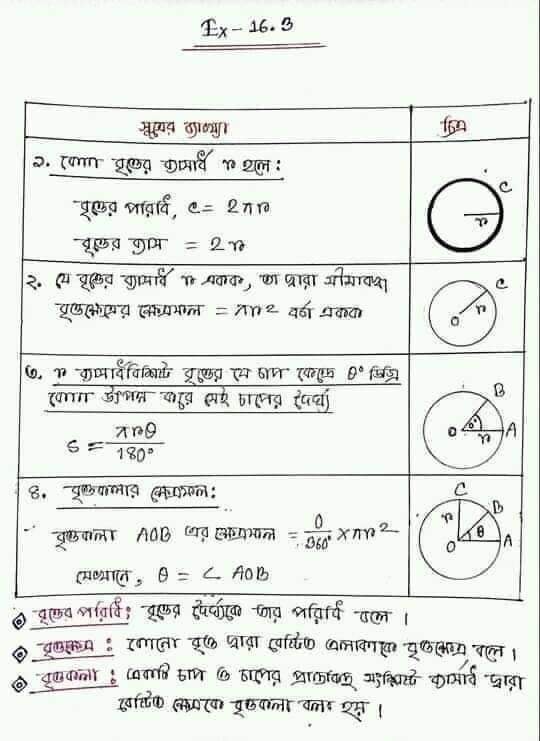 Ex - 16.3
সূত্রের ব্যাখ্যা
চিত্র
১. কোন বৃত্তের ব্যাসার্ধ r হলে:
বৃত্তের পরিধি, c = 2πr
বৃত্তের ব্যাস = 2r
c
r
২. যে বৃত্তের ব্যাসার্ধ r একক, তা দ্বারা সীমাবদ্ধ
বৃত্তক্ষেত্রের ক্ষেত্রফল = πr² বর্গ একক
c
r
O
৩. r ব্যাসার্ধবিশিষ্ট বৃত্তের যে চাপ কেন্দ্রে θ° ডিগ্রি
কোন উৎপন্ন করে সেই চাপের দৈর্ঘ্য
s = πrθ/180°
B
O θ° A
r
৪. বৃত্তকলার ক্ষেত্রফল:
বৃত্তকলা AOB এর ক্ষেত্রফল = θ/360° × πr²
যেখানে, θ = ∠AOB
C
r B
θ
O A
বৃত্তের পরিধি: বৃত্তের দৈর্ঘ্যকে তার পরিধি বলে।
বৃত্তক্ষেত্র: কোনো বৃত্ত দ্বারা বেষ্টিত এলাকাকে বৃত্তক্ষেত্র বলে।
বৃত্তকলা: একটি চাপ ও চাপের প্রান্তবিন্দু সংশ্লিষ্ট ব্যাসার্ধ দ্বারা
বেষ্টিত ক্ষেত্রকে বৃত্তকলা বলা হয়।